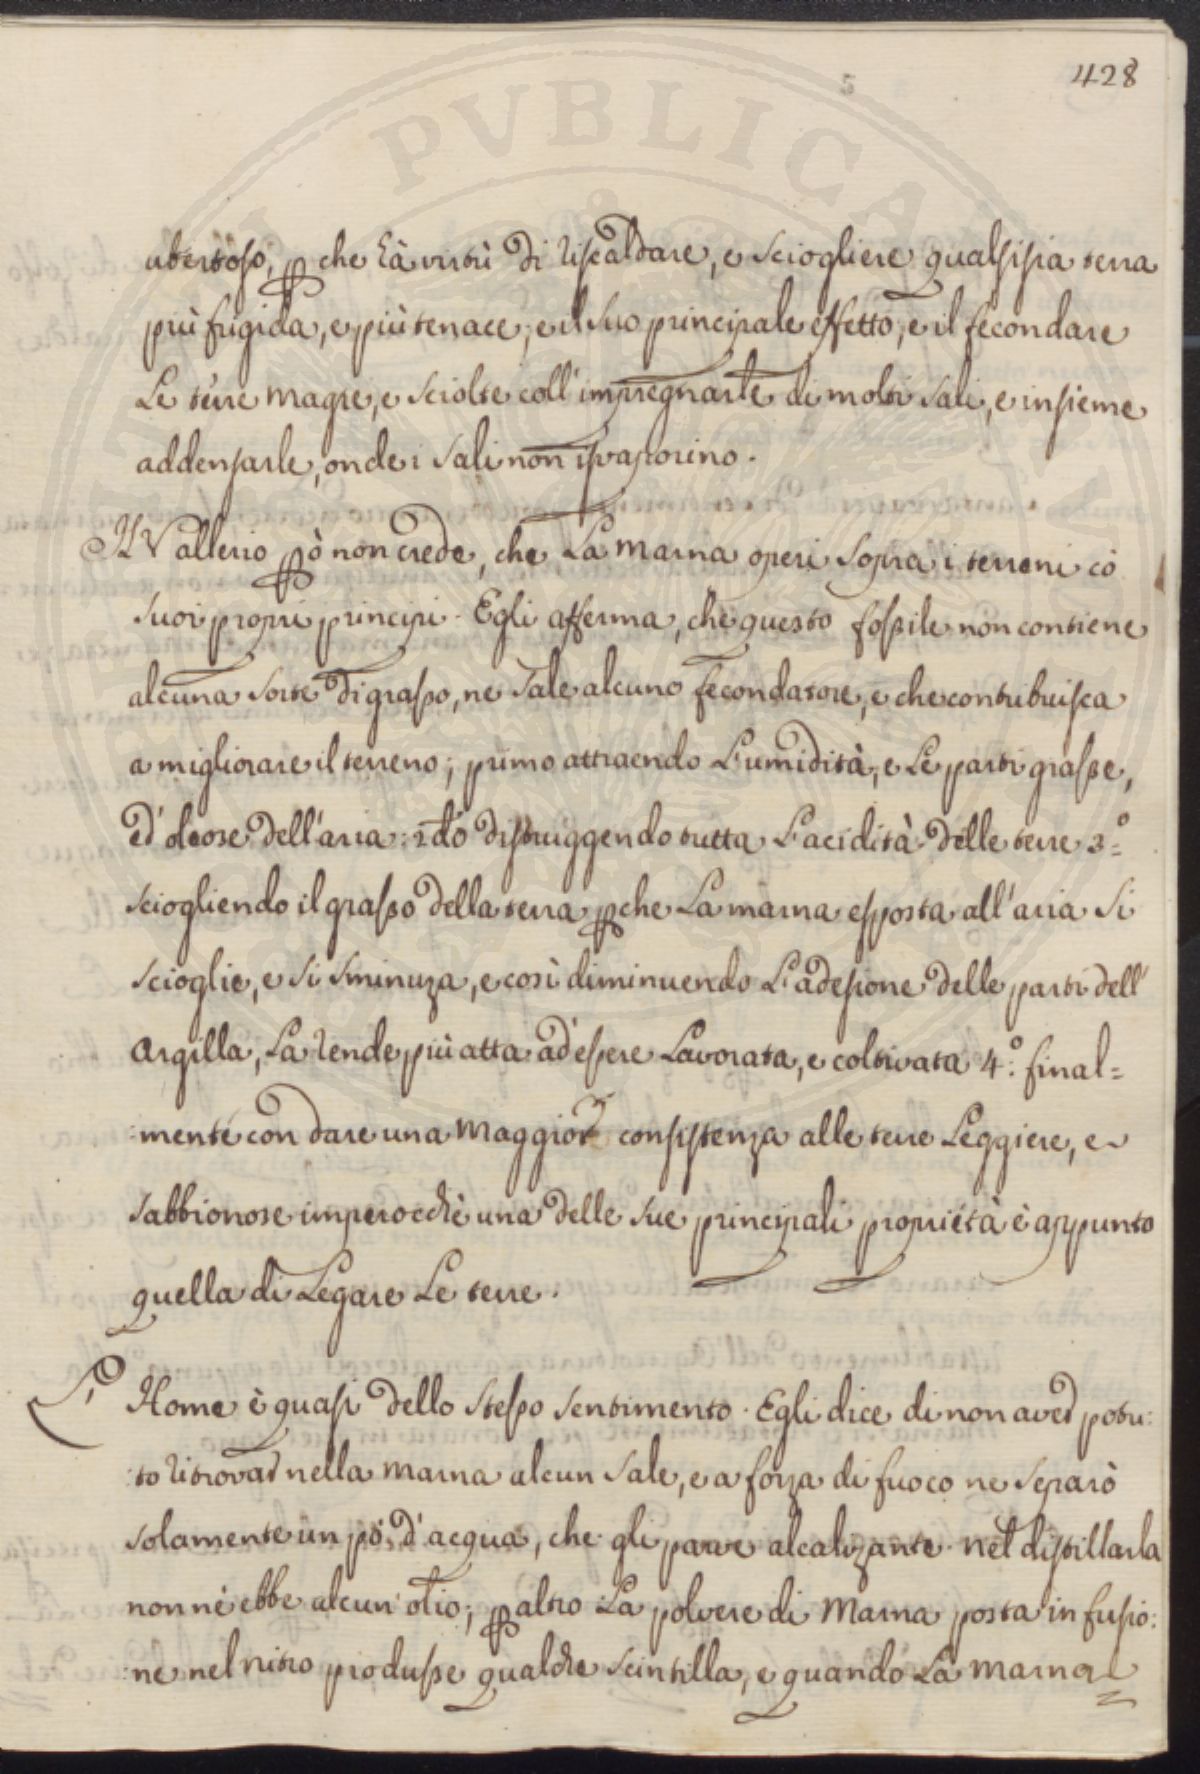 428
5
PVBLICA
ubertoso, p che hà virtù di riscaldare, e sciogliere qualsisia terra
più frigida, e più tenace, e il suo principale effetto, e il fecondare
Le terre magre, e sciolte coll' impregnarle di molti sali, e insieme
addensarle, onde i sali non isvaporino.
Il Vallerio pò non crede, che La marna operi sopra i terreni có
suoi proprii principii. Egli afferma, che questo fossile non contiene
alcuna sorte di grasso, ne sale alcuno fecondatore, e che contribuisca
a migliorare il terreno; primo attraendo L'umidità, e Le parti grasse,
ed' oleose dell'aria: 2do distruggendo tutta L'acidità delle terre 3º=
sciogliendo il grasso della terra pche La marna esposta all'aria si
scioglie, e si sminuza, e così diminuendo L'adesione delle parti dell'
argilla, La rende più atta ad' essere Lavorata, e coltivata 4.º final=
:mente con dare una maggior consistenza alle terre Leggiere, e
sabbionose imperocchè una delle sue principali proprietà è appunto
quella di Legare Le terre.
L' Home è quasi dello stesso sentimento. Egli dice di non aver potu:
:to ritrovar nella marna alcun sale, e a forza di fuoco ne separò
solamente un pó d'acqua, che gli parve alcalizante nel distillarla
non nè ebbe alcun' olio; paltro La polvere di Marna posta in fusio:
:ne nel nitro produsse qualche scintilla, e quando La marna